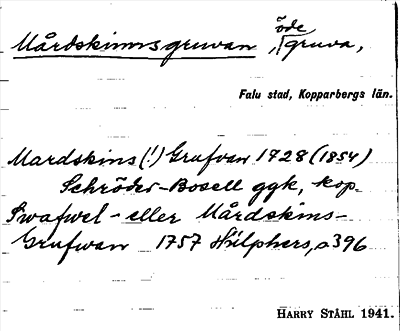 Mårdskinnsgruvan, öde gruva,
Falu stad, Kopparbergs län.
Mardskins (!) Grufvan 1728 (1854)
Schröder-Bosell ggk, kop.
Swafwel- eller Mårdskins-
Grufwan 1757 Hülphers, s 396
HARRY STÅHL 1941.